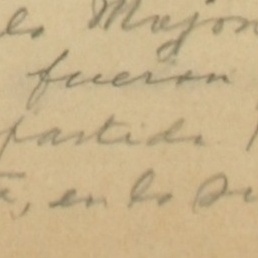 lo Mayor
fueron
partida
, en lo su